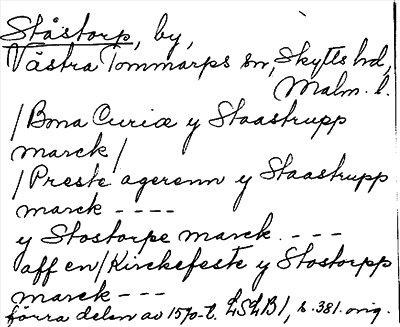 Ståstorp, by,
Västra Tommarps sn, Skytts hd,
Malm. l.
/Bona Curiæ y Staastrupp
marck/
/Preste agerenn y Staastrupp
marck ----
y Stostorpe marck ----
aff en/Kirckefeste y Stostorpp
marck ---
förra delen av 1570-t. LSLB1, s. 381. orig.